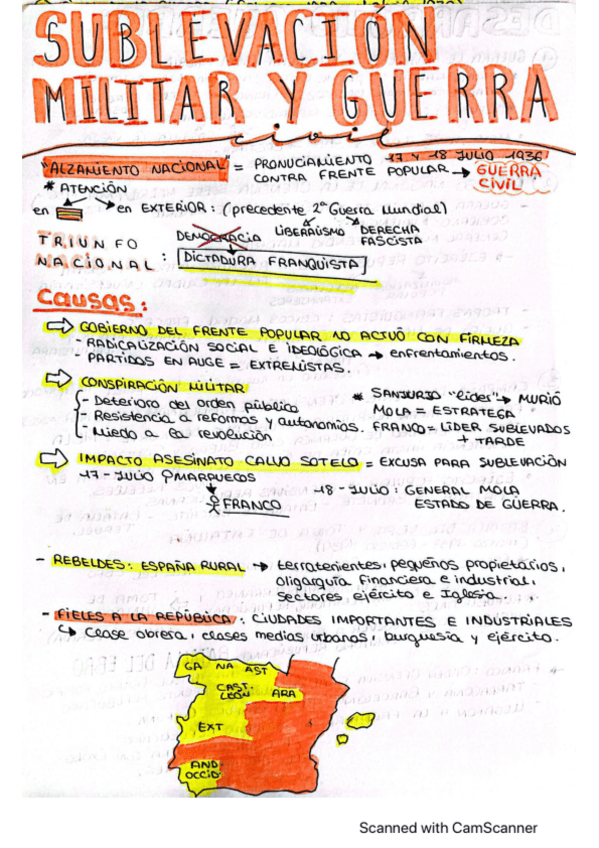 SUBLEVACIÓN
MILITAR Y GUERRA
civil
"ALZAMIENTO NACIONAL" = PRONUCIAMIENTO 17 Y 18 JULIO 1936
CONTRA FRENTE POPULAR → GUERRA CIVIL
* ATENCIÓN
en → en EXTERIOR: (precedente 2ª Guerra Mundial)
TRIUNFO NACIONAL: DEMOCRACIA LIBERALISMO DERECHA FASCISTA
DICTADURA FRANQUISTA
Causas:
⇨ GOBIERNO DEL FRENTE POPULAR NO ACTUÓ CON FIRMEZA
- RADICALIZACIÓN SOCIAL E IDEOLÓGICA → enfrentamientos.
- PARTIDOS EN AUGE = EXTREMISTAS.
⇨ CONSPIRACIÓN MILITAR
- Deterioro del orden público
- Resistencia a reformas y autonomías.
- Miedo a la revolución
* SANJURJO "líder" → MURIÓ
MOLA = ESTRATEGA
FRANCO = LÍDER SUBLEVADOS
+ TARDE
⇨ IMPACTO ASESINATO CALVO SOTELO = EXCUSA PARA SUBLEVACIÓN
17 - JULIO MARRUECOS
FRANCO
18 - JULIO: GENERAL MOLA
ESTADO DE GUERRA.
- REBELDES: ESPAÑA RURAL → terratenientes, pequeños propietarios,
oligarquía financiera e industrial,
sectores ejército e Iglesia.
- FIELES A LA REPÚBLICA: CIUDADES IMPORTANTES E INDUSTRIALES
↳ Clase obrera, clases medias urbanas, burguesía y ejército.
GA NA AST
CAST. LEÓN ARA
EXT
AND OCCID
Scanned with CamScanner